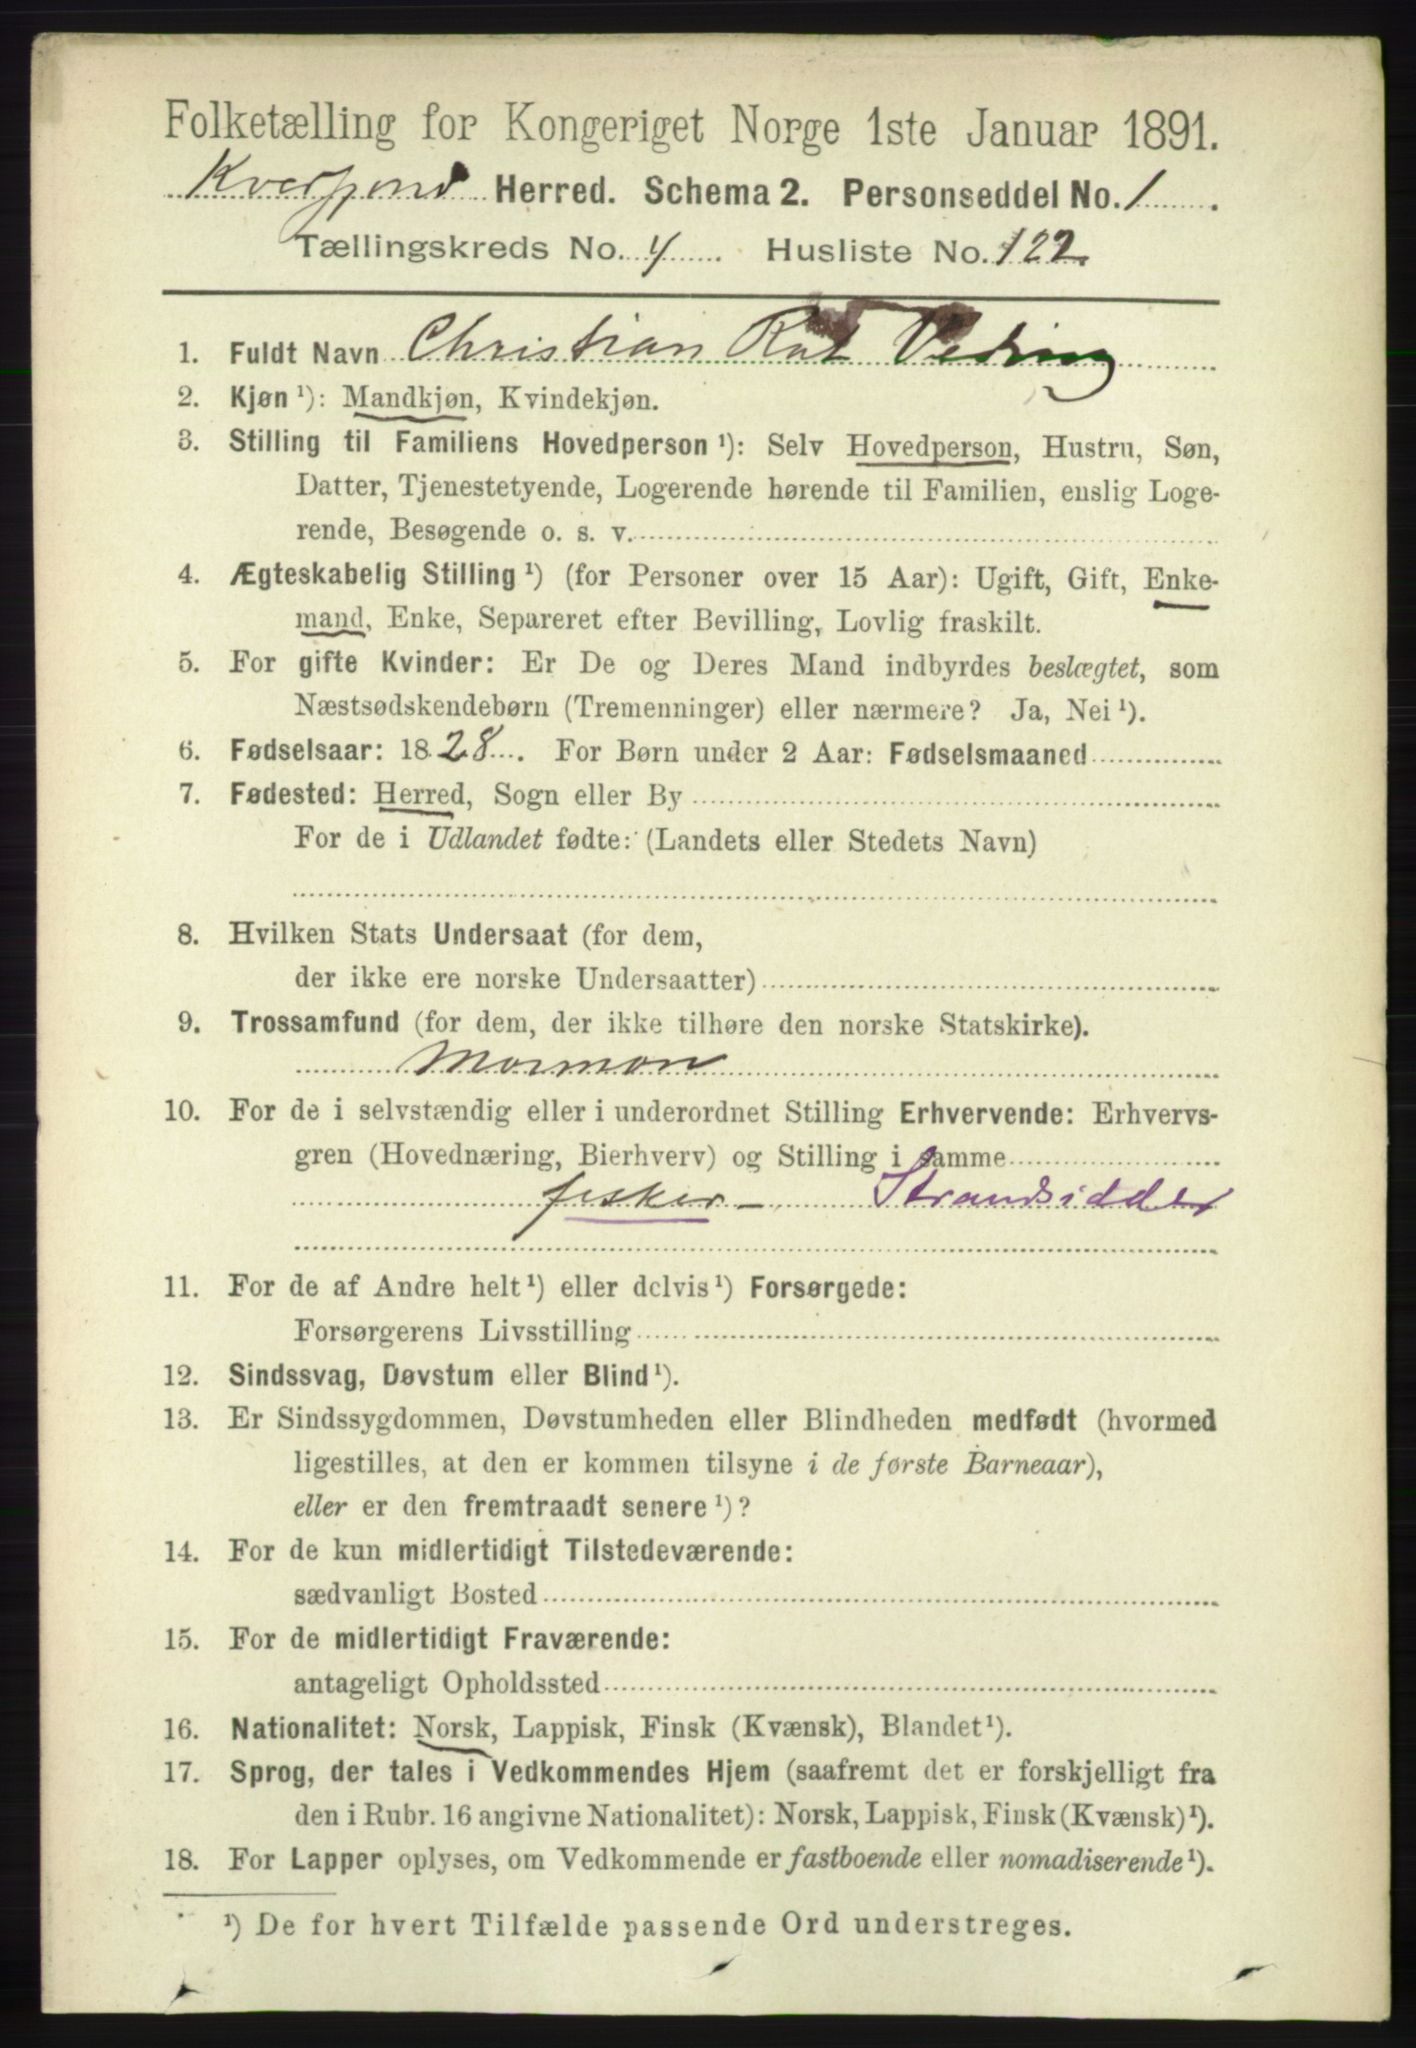 Folketælling for Kongeriget Norge 1ste Januar 1891.
Kvæfjord Herred. Schema 2. Personseddel No. 1.
Tællingskreds No. 4. Husliste No. 122.
1. Fuldt Navn Christian Rat
2. Kjøn ¹): Mandkjøn, Kvindekjøn.
3. Stilling til Familiens Hovedperson ¹): Selv Hovedperson, Hustru, Søn,
Datter, Tjenestetyende, Logerende hørende til Familien, enslig Loge-
rende, Besøgende o. s. v.
4. Ægteskabelig Stilling ¹) (for Personer over 15 Aar): Ugift, Gift, Enke-
mand, Enke, Separeret efter Bevilling, Lovlig fraskilt.
5. For gifte Kvinder: Er De og Deres Mand indbyrdes beslægtet, som
Næstsødskendebørn (Tremenninger) eller nærmere? Ja, Nei ¹).
6. Fødselsaar: 1828. For Børn under 2 Aar: Fødselsmaaned
7. Fødested: Herred, Sogn eller By
For de i Udlandet fødte: (Landets eller Stedets Navn)
8. Hvilken Stats Undersaat (for dem,
der ikke ere norske Undersaatter)
9. Trossamfund (for dem, der ikke tilhøre den norske Statskirke).
Mormon
10. For de i selvstændig eller i underordnet Stilling Erhvervende: Erhvervs-
gren (Hovednæring, Bierhverv) og Stilling i samme
fisker – Strandsidder
11. For de af Andre helt ¹) eller delvis ¹) Forsørgede:
Forsørgerens Livsstilling
12. Sindssvag, Døvstum eller Blind ¹).
13. Er Sindssygdommen, Døvstumheden eller Blindheden medfødt (hvormed
ligestilles, at den er kommen tilsyne i de første Barneaar),
eller er den fremtraadt senere ¹)?
14. For de kun midlertidigt Tilstedeværende:
sædvanligt Bosted
15. For de midlertidigt Fraværende:
antageligt Opholdssted
16. Nationalitet: Norsk, Lappisk, Finsk (Kvænsk), Blandet ¹).
17. Sprog, der tales i Vedkommendes Hjem (saafremt det er forskjelligt fra
den i Rubr. 16 angivne Nationalitet): Norsk, Lappisk, Finsk (Kvænsk) ¹).
18. For Lapper oplyses, om Vedkommende er fastboende eller nomadiserende ¹).
¹) De for hvert Tilfælde passende Ord understreges.